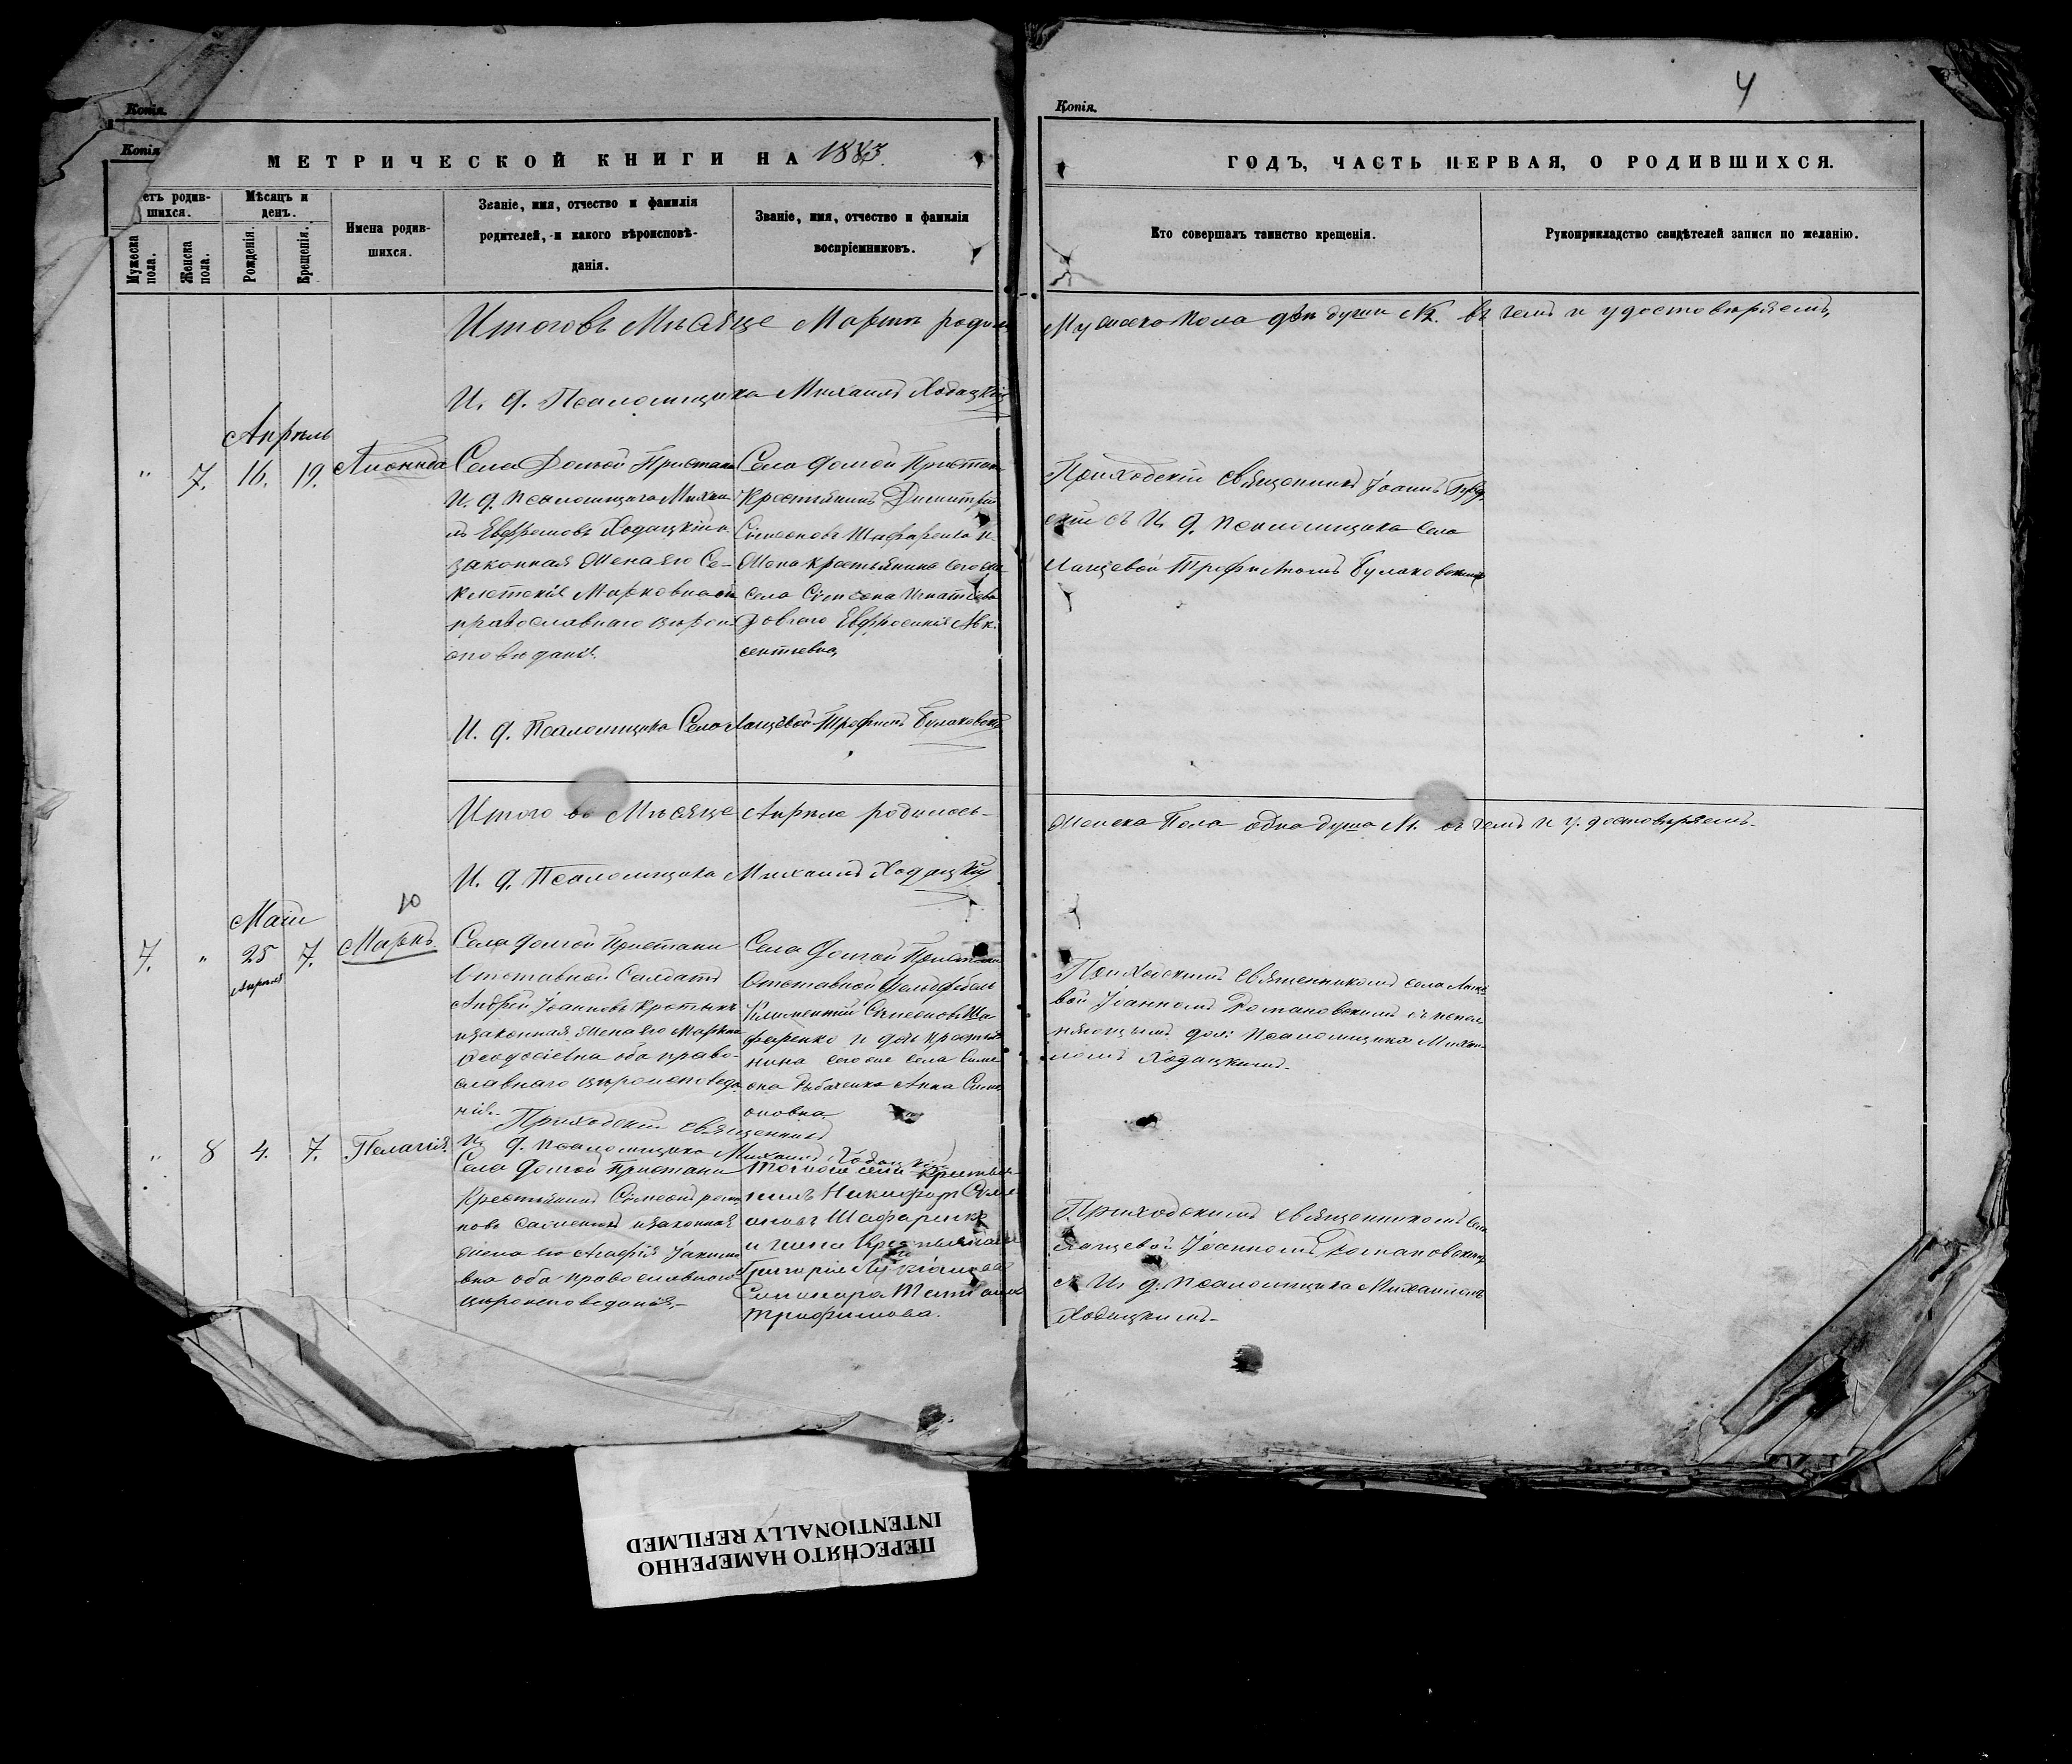 4
Копія.
Копія.
Копія
МЕТРИЧЕСКОЙ КНИГИ НА 1883.
ГОДЪ, ЧАСТЬ ПЕРВАЯ, О РОДИВШИХСЯ.
етъ родив-
шихся.
Мужеска
пола.
Женска
пола.
Мѣсяцъ и
день.
Рожденія.
Крещенія.
Имена родив-
шихся.
Званіе, имя, отчество и фамилія
родителей, и какого вѣроисповѣ-
данія.
Званіе, имя, отчество и фамилія
воспріемниковъ.
Кто совершалъ таинство крещенія.
Рукоприкладство свидѣтелей записи по желанію.
Итого въ Мѣсяце Мартѣ
Мужеска Пола двѣ души №2. въ чемъ и удостовѣряемъ,
И. д. Псаломщика Михаилъ Ходацкій
Апрѣль
" 7. 16. 19.
Села Долгой Пристани
И. д. Псаломщика Михаи-
лъ Евфремовъ Ходацкій и
законная жена его Се-
Марковна
православнаго вѣрои-
споведанія.
Села Долгой Пристани
Крестьянинъ Димитрій
Сімеоновъ Шафаренко и
Жена крестьянина сего же
села Сімеона Игнатіева
Евфросинія Ав-
сентиевна,
Приходскій Священникъ Іоаннъ
съ И. д. псаломщика села
Лащевой Трофимомъ Булаковскимъ
И. д. Псаломщика Села Лащевой Трофимъ Булаковскій
Итого во Мѣсяце Апрѣле родилось
Женска Пола одна душа №1. въ чемъ и удостовѣряемъ.
И. д. Псаломщика Михаилъ Ходацкій
10
Май
7. " 25 7. Маркъ.
Апрѣля
Села Долгой Пристани
Отставной Солдатъ
Андрей Іоанновъ
и законная Жена его Марина
Феодосіевна оба право-
славнаго вѣроисповеда
нія.
Села Долгой Пристани
Отставной Фельдфебель
Климентий Сімеоновъ Ша-
фаренко и дочь крестья-
нина сего же села Симе
она Рыбаченка Анна Симе
оновна
Приходскимъ Священникомъ села Лаще-
вой Іоанномъ Романовскимъ съ испол-
няющимъ долж. Псаломщика Михаи-
ломъ Ходацкимъ.
Приходскій священникъ
И. д. псаломщика Михаилъ Ходацкій
" 8 4. 7. Пелагія.
Села Долгой Пристани
Крестьянинъ Сімеонъ
и законная
жена его Агафія Іакимо
вна оба православнаго
вѣроисповеданія.
Того же села крестья-
нинъ Никифоръ Симе
оновъ Шафаренко
и жена Крестьянина
Григорія
Татіана
Трифимова.
Приходскимъ священникомъ села
Лащевой Іоанномъ Романовскимъ
съ И. д. Псаломщика Михаиломъ
Ходацкимъ
ПЕРЕСНЯТО НАМЕРЕННО
INTENTIONALLY REFILMED